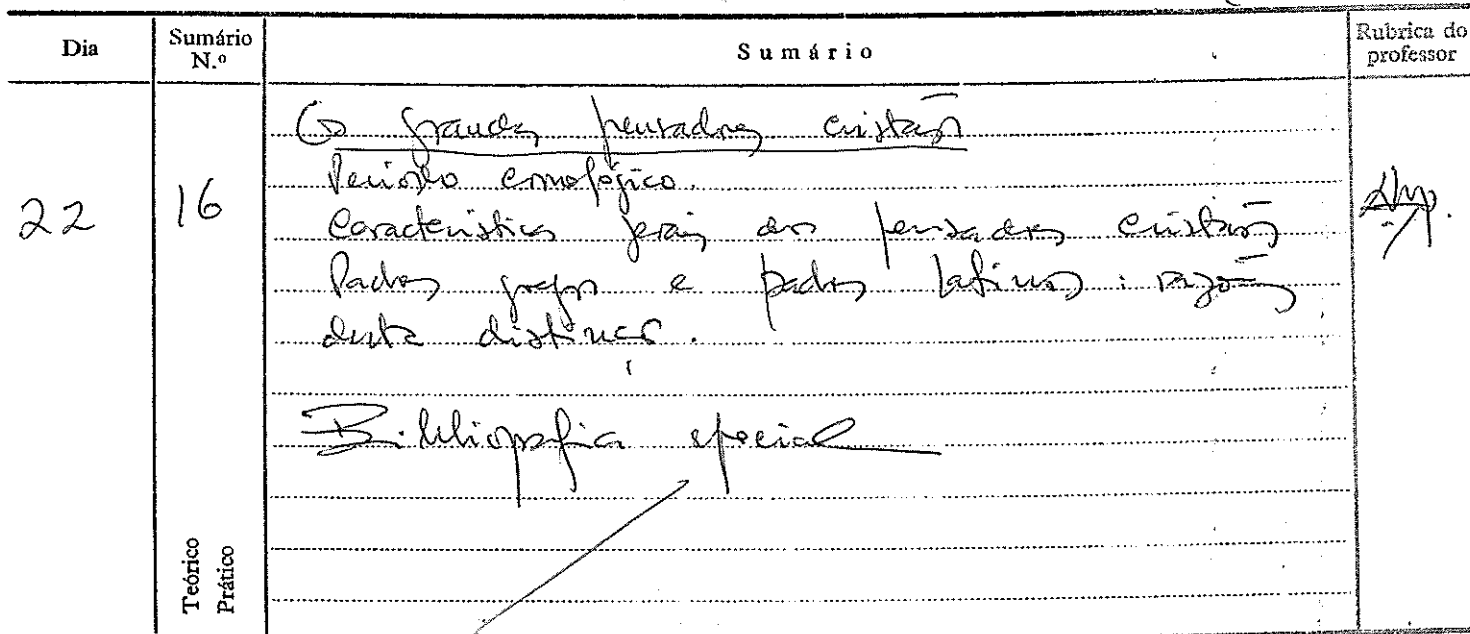 Dia
Sumário N.º
Sumário
Rubrica do professor
22
16
Os grandes pensadores cristãos
Período cronológico.
Características gerais dos pensadores cristãos
Padres gregos e padres latinos: razões
desta distinção.
Bibliografia especial
Teórico
Prático